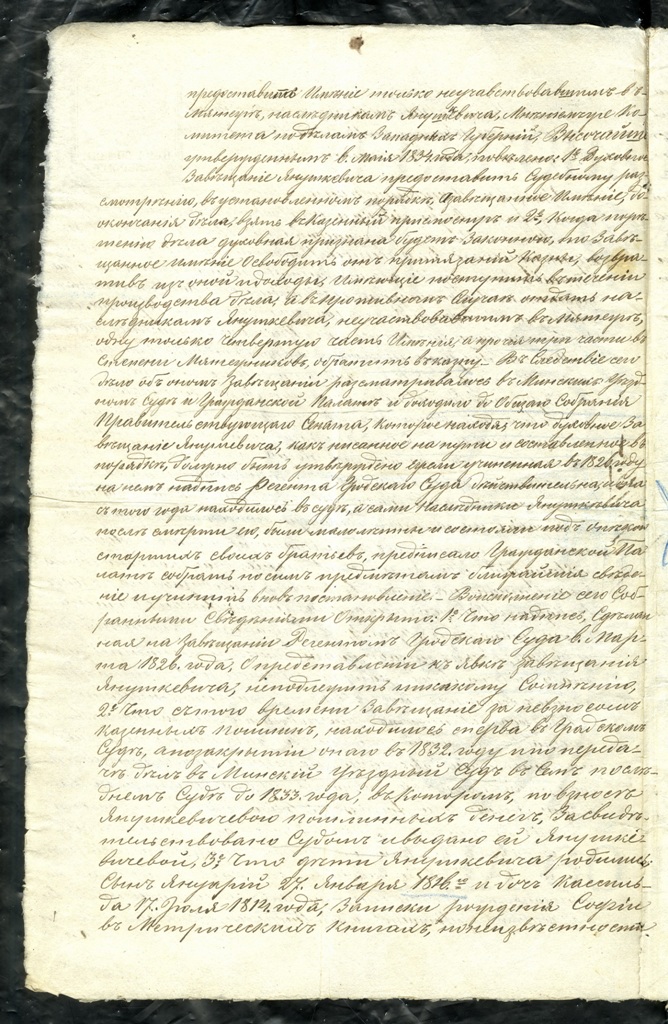 предоставить Имѣніе только неучавствовавшимъ въ
Мятежѣ, наслѣдникамъ Янушкевича, Мнѣніемъ же Ко-
митета по дѣламъ Западныхъ Губерній, Высочайше
утвержденнымъ въ Маія 1834 года, повелѣно: 1е Духовное
Завѣщаніе Янушкевича предоставить Судебному раз-
смотрѣнію, въ установленномъ порядкѣ, а завѣщанное Имѣніе, до
окончанія дѣла, взять въ казенный присмотръ и 2е Когда по рѣ-
шенію дѣла духовная признана будетъ Законною, то Завѣ-
щанное имѣніе Освободить отъ притязаній Казны, возвра-
тивъ изъ оной и доходы, Имѣющіе поступить въ теченіи
производства дѣла; а въ противномъ Случаѣ отдать на-
слѣдникамъ Янушкевича, неучаствовавшимъ въ Мятежѣ,
одну только четвертую часть Имѣнія, а прочія три части въ
Степени Мятежниковъ, обратить въ казну. — Въ Слѣдствіе сего
дѣло объ ономъ Завѣщаніи разсматривалось въ Минскихъ Уѣзд-
номъ Судѣ и Гражданской Палатѣ и доходило до Общаго Собранія
Правительствующаго Сената, которое находя, что духовное За-
вѣщаніе Янушкевича, какъ писанное на пути и составленное въ
порядкѣ, должно быть утверждено если учиненная въ 1826 году
на немъ надпись Регента Гродскаго Суда дѣйствительна, и
съ того года находилось въ судѣ, а сами Наслѣдники Янушкевича
послѣ смерти его, были малолѣтны и состояли подъ опекою
старшихъ своихъ братьевъ, предписало Гражданской Па-
латѣ собрать по симъ предмѣтамъ ближайшія свѣдѣ-
ніе и учинить вновь постановленіе. — Въ исполненіе сего Соб-
ранными Свѣдѣніями Открыто: 1е Что надпись, Сдѣлан-
ная на Завѣщаніи Регентомъ Гродскаго Суда въ Мар-
та 1826. года, О представленіи къ явкѣ завѣщанія
Янушкевича, неподлежитъ никакому Сомнѣнію,
2е Что съ того времени Завѣщаніе за невзносомъ
казенныхъ пошлинъ, находилось сперва въ Градскомъ
Судѣ, а по закрытіи онаго въ 1832. году и по переда-
чѣ дѣлъ въ Минскій Уѣздный Судъ въ Семъ послѣ-
днемъ Судѣ до 1833. года, въ которомъ, по взносѣ
Янушкевичевою пошлинныхъ денегъ, Засвидѣ-
тельствовано Судомъ и выдано ей Янушке-
вичевой, 3е Что дѣти Янушкевича родились:
Сынъ Януарій 27. Января 1816.го и дочь Кассиль-
да 17. Іюля 1814. года, Записки рожденія Софіи
въ Метрическихъ Книгахъ, по неизвѣстности